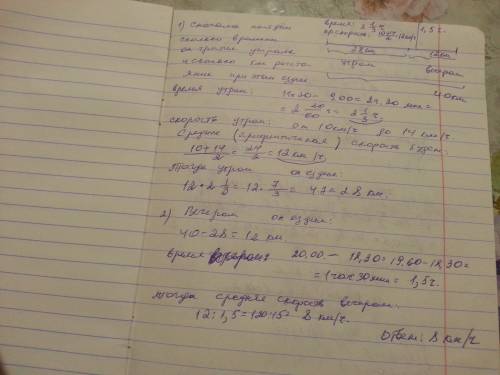 1) Сначала найдём
сколько времени
он тратил утром
и сколько км расстоя
яние при этом ездил.
время: 2 1/3 ч 1,5 г.
12 км/ч
28 км 12 км
утром вечером
40 км
время утром: 11.20 - 9.00 = 2ч. 20 мин =
= 2 20/60 ч = 2 1/3 ч.
скорость утром: от 10 км/ч до 14 км/ч.
Средняя (арифметическая) скорость будет:
10+14/2 = 24/2 = 12 км/ч
тогда утром он ездил:
12 * 2 1/3 = 12 · 7/3 = 4.7 = 28 км.
2) Вечером он ездил:
40 - 28 = 12 км.
время вечером: 20.00 - 18,30 = 19,60 - 18,30 =
= 1 час 30 мин = 1,5 г.
тогда средняя скорость вечером:
12 : 1,5 = 120:15 = 8 км/г.
Ответ: 8 км/г